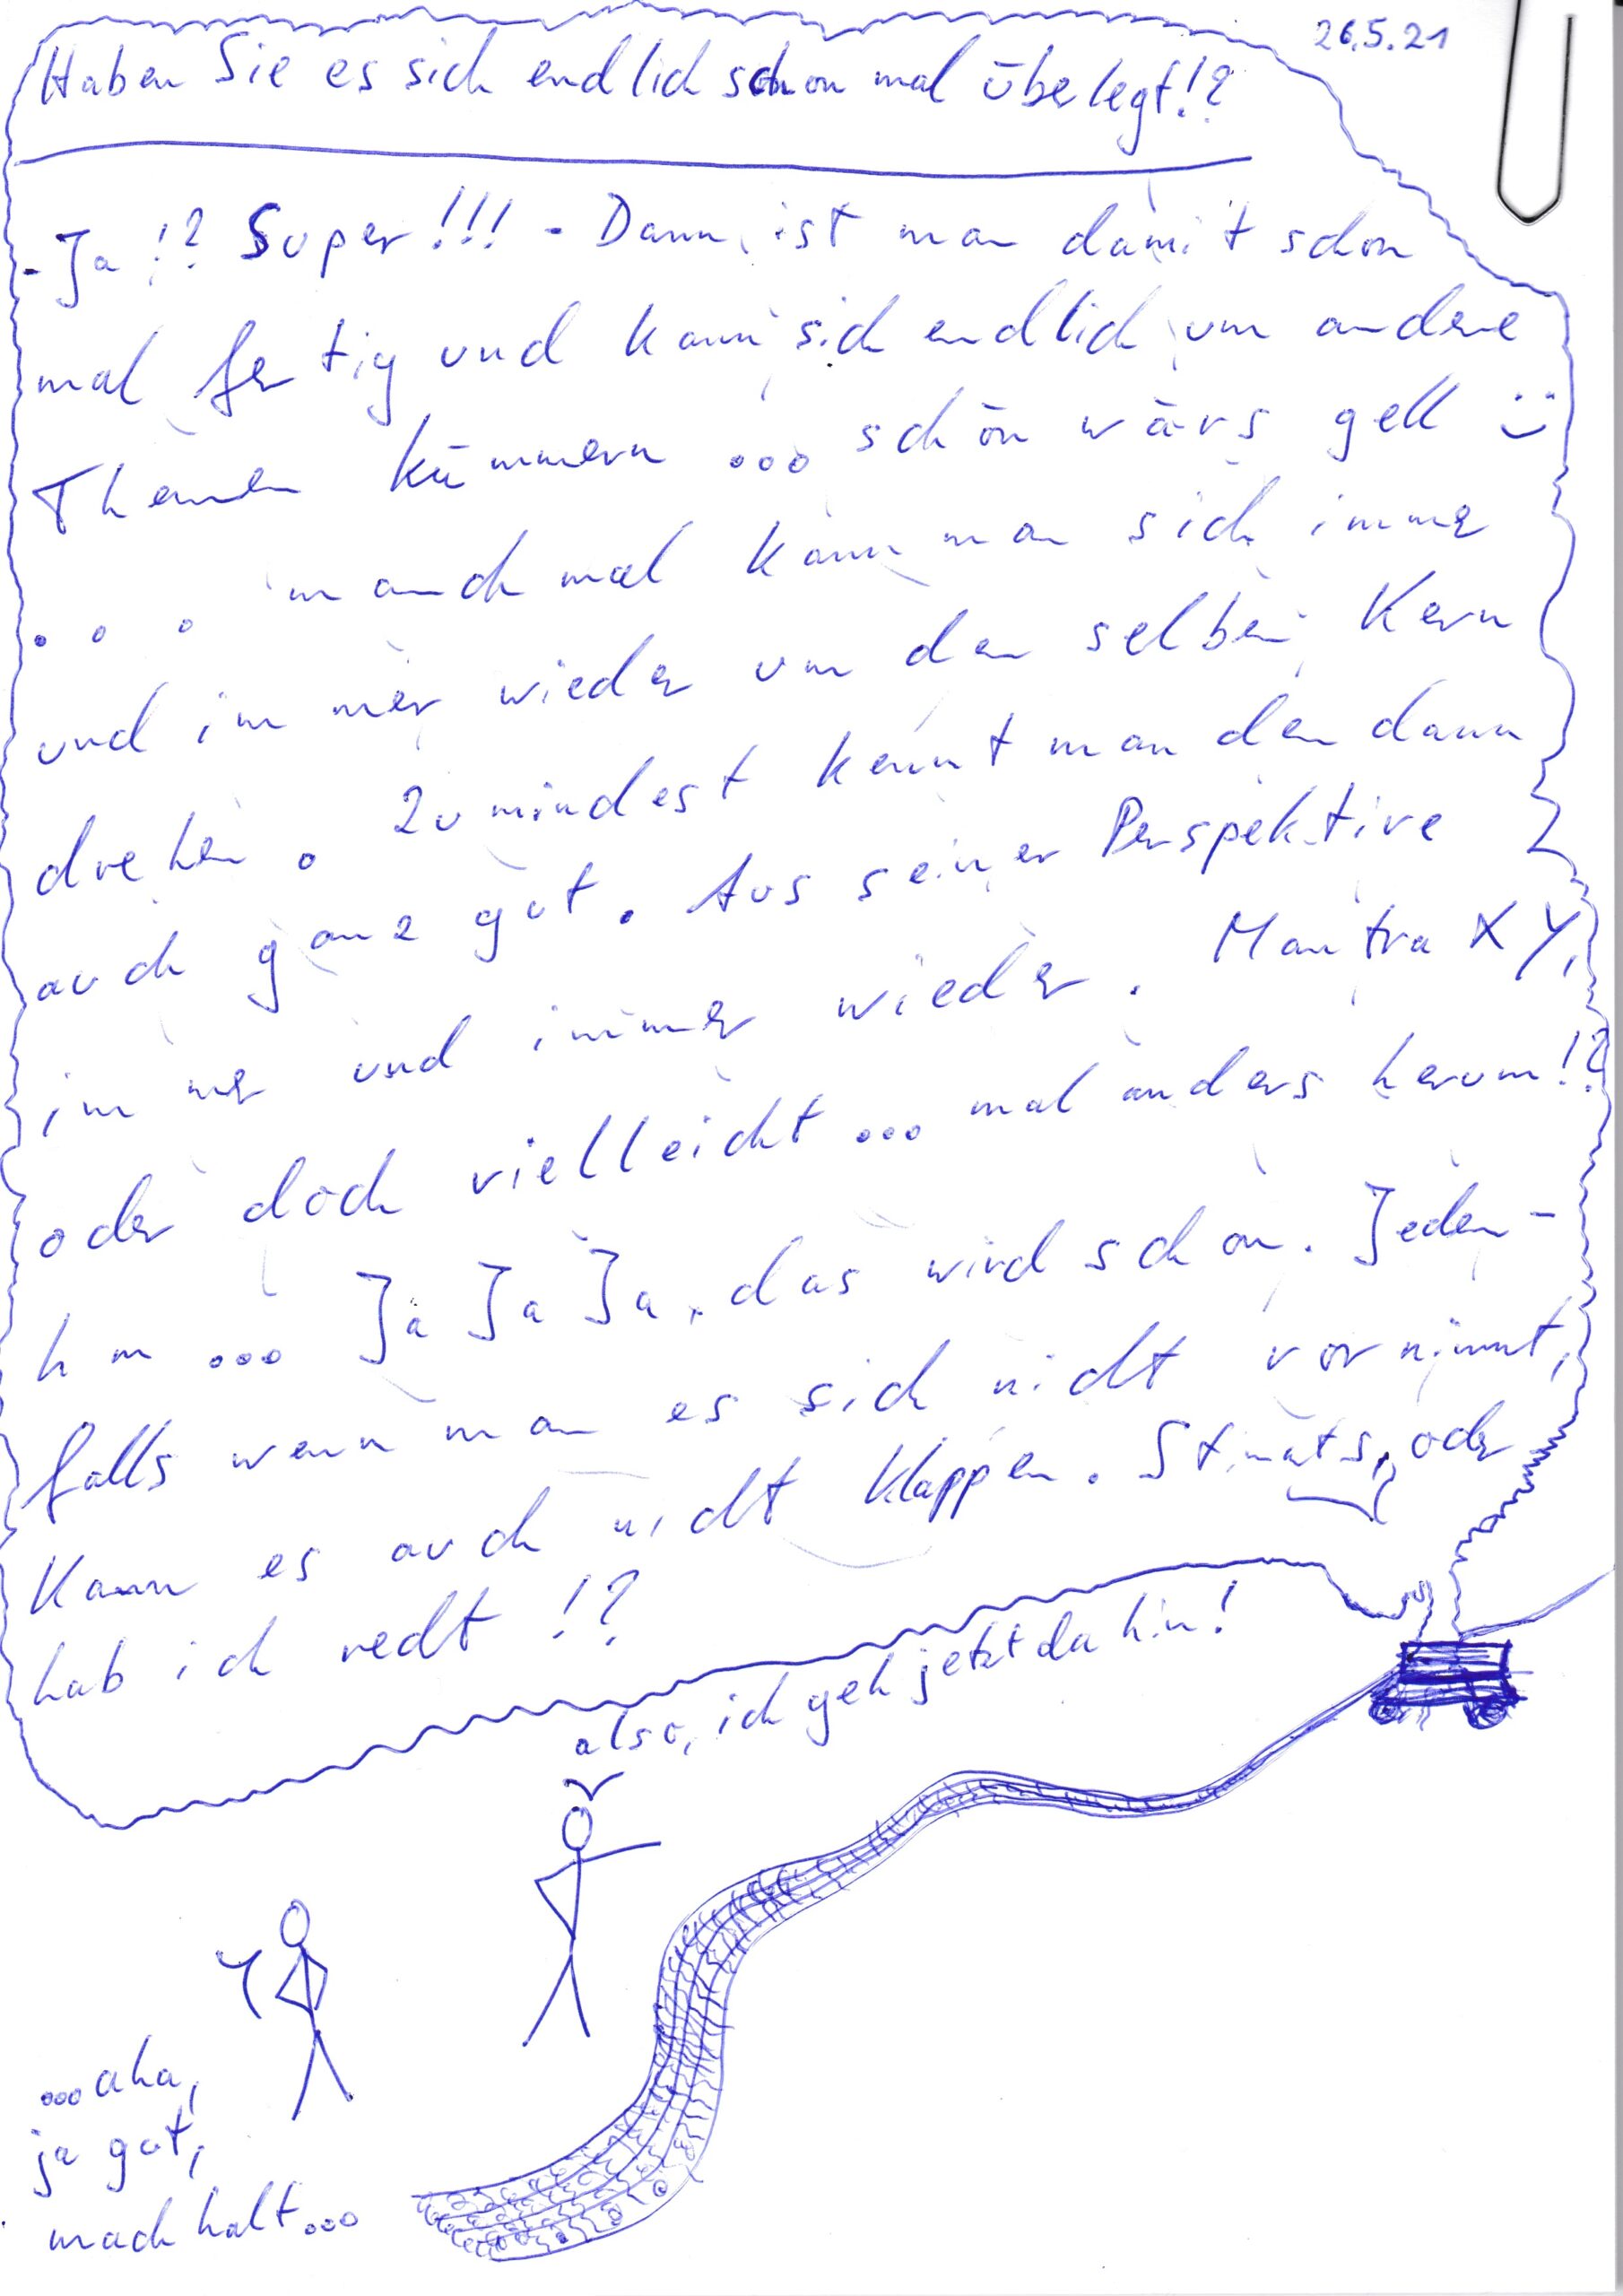 26.5.21
Haben Sie es sich endlich schon mal überlegt!?
- Ja !? Super!!! - Dann ist man damit schon
mal fertig und kann sich endlich um andere
Themen kümmern ... schön wärs gell :)
... manchmal kann man sich immer
und immer wieder um den selben Kern
drehen. Zumindest kennt man den dann
auch ganz gut. Aus seiner Perspektive
immer und immer wieder. Mantra XY,
oder doch vielleicht ... mal anders herum!?
hm ... Ja Ja Ja, das wird schon. Jeden-
falls wenn man es sich nicht vornimmt,
kann es auch nicht klappen. Stimmts, oder
hab ich recht !?
also, ich geh jetzt da hin!
...aha,
ja gut,
mach halt...